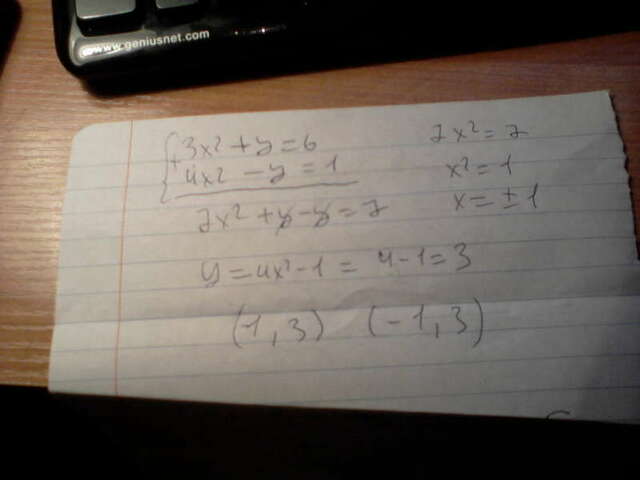 www.geniusnet.com
3x² + y = 6
+
4x² - y = 1
7x² + y - y = 7
7x² = 7
x² = 1
x = ± 1
y = 4x² - 1 = 4 - 1 = 3
(1, 3) (-1, 3)